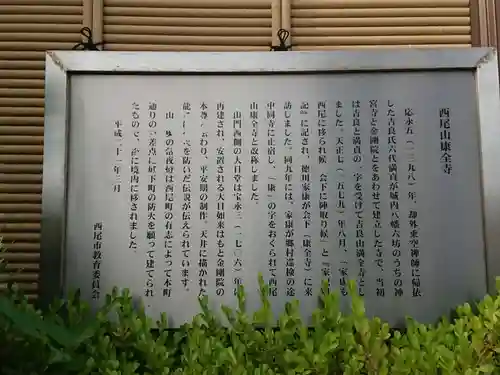 西尾山康全寺
応永五(一三九八)年、却外来空禅師に帰依
した吉良氏六代満貞が城内八幡六坊のうちの神
宮寺と金剛院とをあわせて建立した寺で、当初
は吉良と満貞の一字を受けて吉良山満全寺とし
ました。天正七(一五七九)年八月、「家康も
西尾に移られ候 会下に陣取り候」と『家
記』に記され、徳川家康が会下(康全寺)に来
訪しました。同九年には、家康が郷村巡検の途
中同寺に止宿し、「康」の字をおくられて西尾
山康全寺と改称しました。
山門西側の大日堂は宝永三(一七〇六)年に
再建され、安置される大日如来はもと金剛院の
本尊 わり、平安期の制作、天井に描かれた
能 を防いだ伝説が伝えられています。
山 の常夜燈は西尾町の有志によって本町
通りの 差点に城下町の防火を願って建てられ
たもので、 に境内に移されました。
平成二 一年三月
西尾市教育委員会